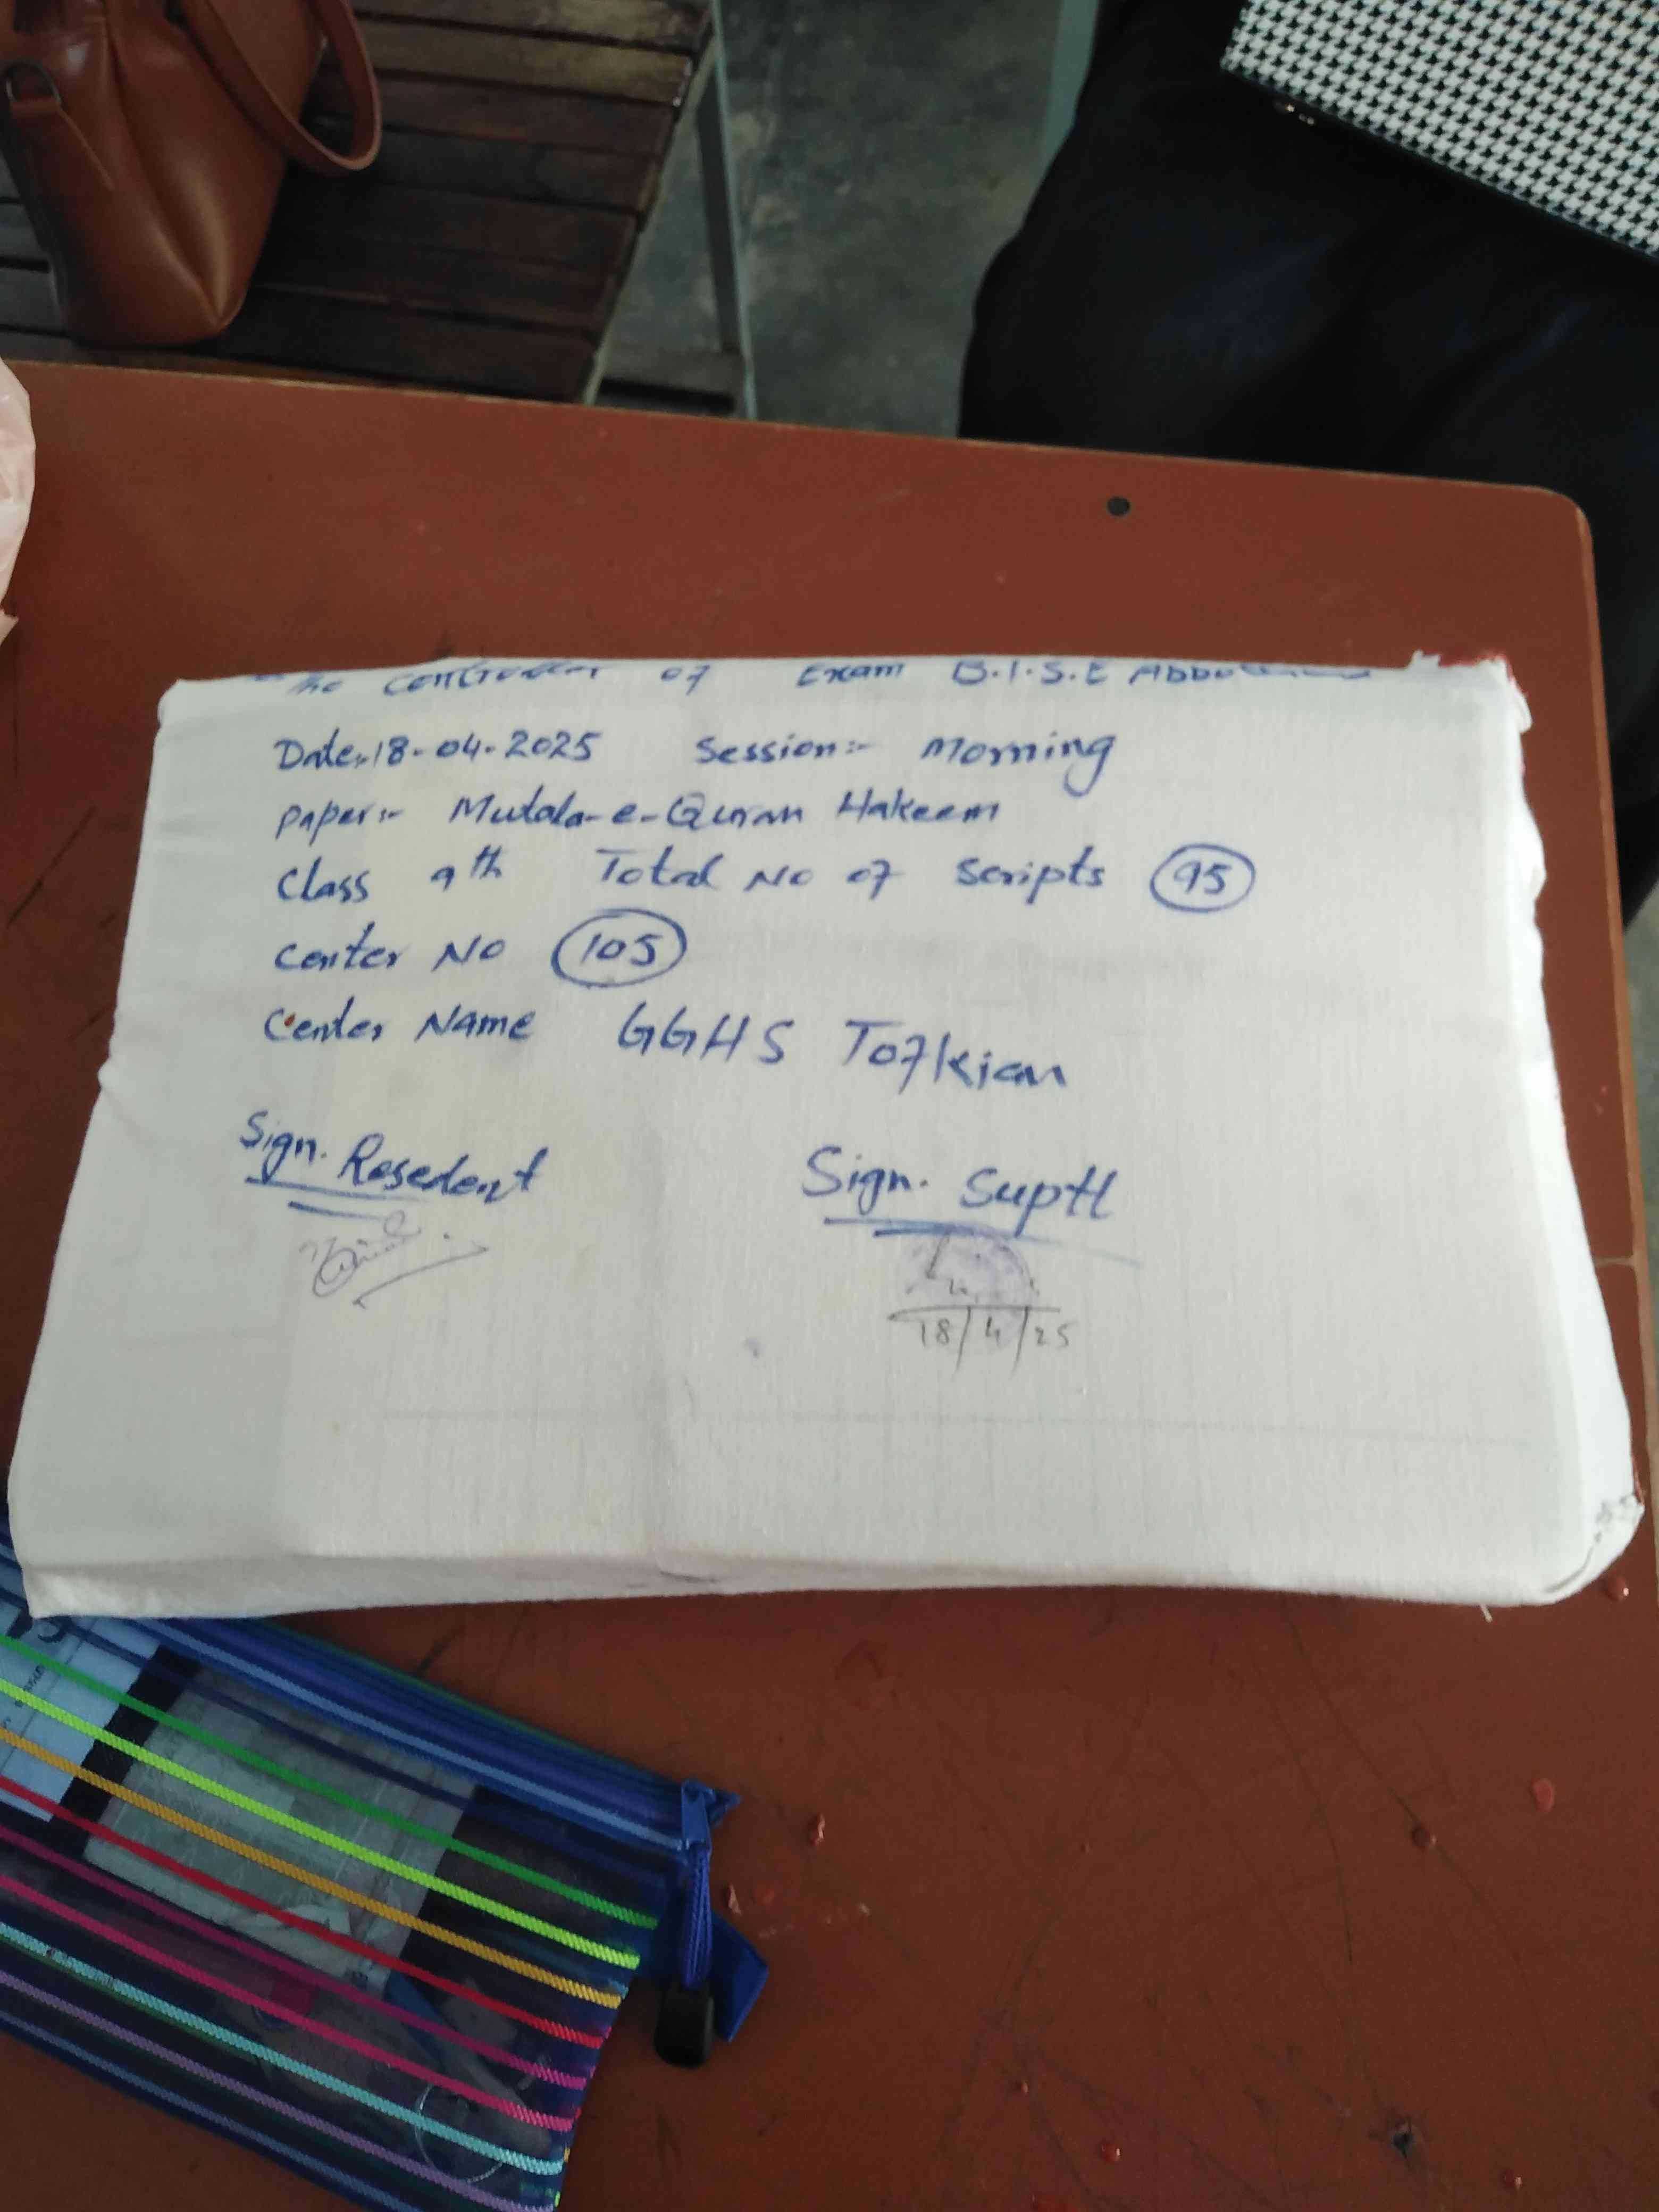 The Controller of Exam B.I.S.E
Date:- 18-04-2025 Session:- Morning
Paper:- Mutala-e-Quran Hakeem
Class 9th Total No of Scripts 95
Center No 105
Center Name GGHS Tofkian
Sign. Resedent
Sign. Suptt
18/4/25